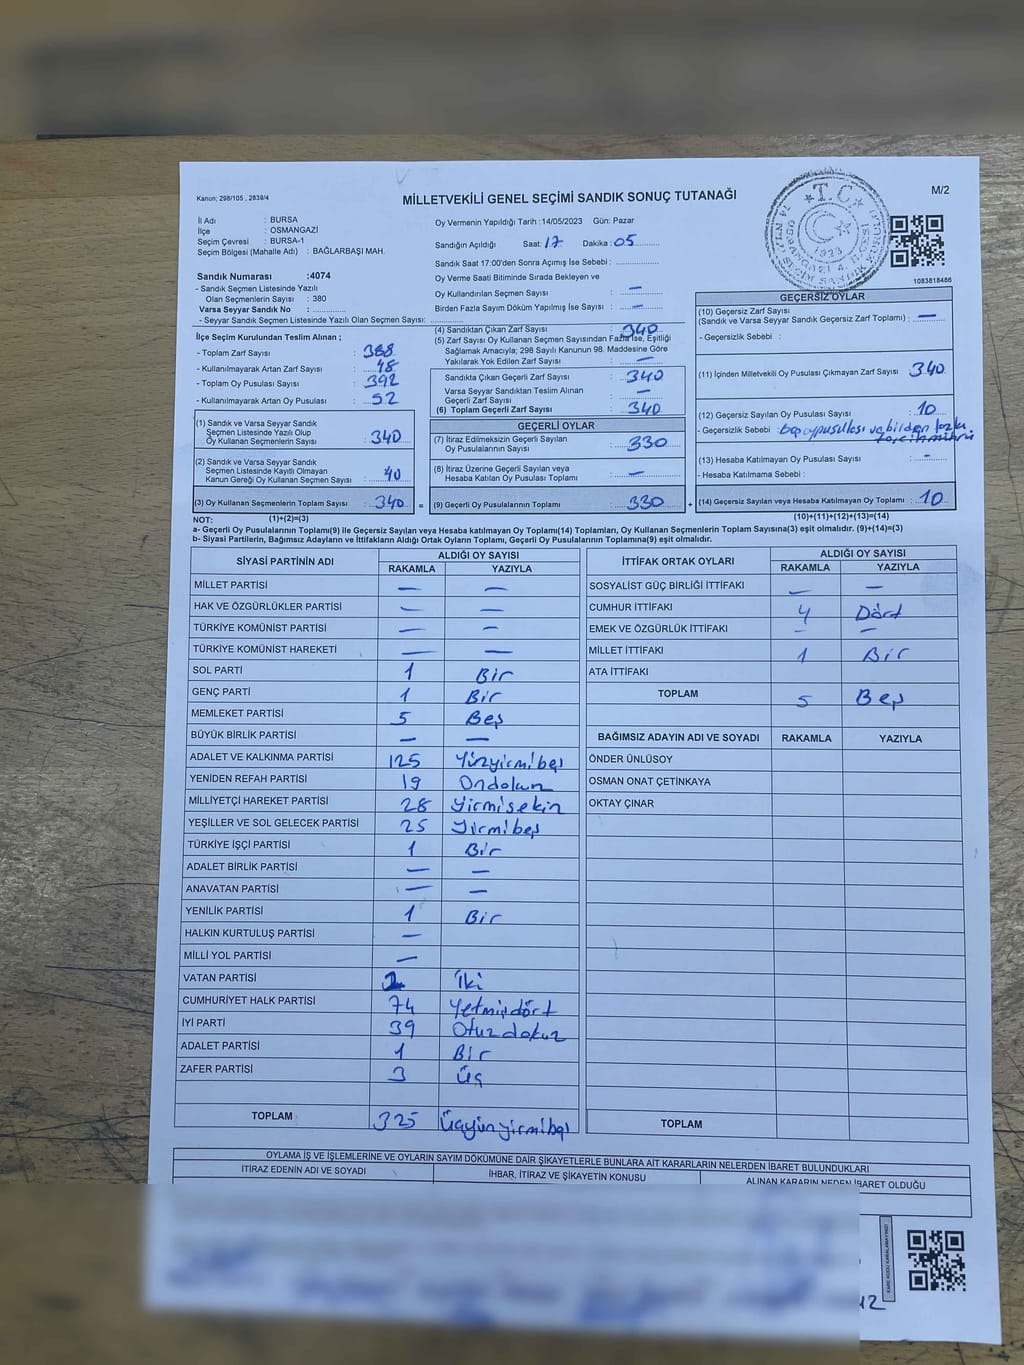 Kanun; 298/105 , 2839/4
MİLLETVEKİLİ GENEL SEÇİMİ SANDIK SONUÇ TUTANAĞI
M/2
T.C.
1083818486
İl Adı : BURSA
İlçe : OSMANGAZİ
Seçim Çevresi : BURSA-1
Seçim Bölgesi (Mahalle Adı) : BAĞLARBAŞI MAH.
Sandık Numarası :4074
- Sandık Seçmen Listesinde Yazılı
Olan Seçmenlerin Sayısı : 380
Varsa Seyyar Sandık No :
- Seyyar Sandık Seçmen Listesinde Yazılı Olan Seçmen Sayısı:
Oy Vermenin Yapıldığı Tarih : 14/05/2023 Gün: Pazar
Sandığın Açıldığı Saat: 17 Dakika : 05
Sandık Saat 17:00'den Sonra Açımış İse Sebebi :
Oy Verme Saati Bitiminde Sırada Bekleyen ve
Oy Kullandırılan Seçmen Sayısı : —
Birden Fazla Sayım Döküm Yapılmış İse Sayısı : —
İlçe Seçim Kurulundan Teslim Alınan ;
- Toplam Zarf Sayısı : 388
- Kullanılmayarak Artan Zarf Sayısı : 48
- Toplam Oy Pusulası Sayısı : 392
- Kullanılmayarak Artan Oy Pusulası : 52
(1) Sandık ve Varsa Seyyar Sandık
Seçmen Listesinde Yazılı Olup
Oy Kullanan Seçmenlerin Sayısı : 340
(2) Sandık ve Varsa Seyyar Sandık
Seçmen Listesinde Kayıtlı Olmayan
Kanun Gereği Oy Kullanan Seçmen Sayısı : 40
(3) Oy Kullanan Seçmenlerin Toplam Sayısı : 340 =
(1)+(2)=(3)
(4) Sandıktan Çıkan Zarf Sayısı : 340
(5) Zarf Sayısı Oy Kullanan Seçmen Sayısından Fazla İse, Eşitliği
Sağlamak Amacıyla; 298 Sayılı Kanunun 98. Maddesine Göre
Yakılarak Yok Edilen Zarf Sayısı : —
Sandıkta Çıkan Geçerli Zarf Sayısı : 340
Varsa Seyyar Sandıktan Teslim Alınan
Geçerli Zarf Sayısı : —
(6) Toplam Geçerli Zarf Sayısı : 340
GEÇERLİ OYLAR
(7) İtiraz Edilmeksizin Geçerli Sayılan
Oy Pusulalarının Sayısı : 330
(8) İtiraz Üzerine Geçerli Sayılan veya
Hesaba Katılan Oy Pusulaları Toplamı : —
(9) Geçerli Oy Pusulalarının Toplamı : 330 +
GEÇERSİZ OYLAR
(10) Geçersiz Zarf Sayısı
(Sandık ve Varsa Seyyar Sandık Geçersiz Zarf Toplamı) : —
- Geçersizlik Sebebi :
(11) İçinden Milletvekili Oy Pusulası Çıkmayan Zarf Sayısı : 340
(12) Geçersiz Sayılan Oy Pusulası Sayısı : 10
- Geçersizlik Sebebi : boş oypusulası ve birden fazla
tercih mührü
(13) Hesaba Katılmayan Oy Pusulası Sayısı : -
- Hesaba Katılmama Sebebi :
(14) Geçersiz Sayılan veya Hesaba Katılmayan Oy Toplamı : 10
(10)+(11)+(12)+(13)=(14)
NOT:
a- Geçerli Oy Pusulalarının Toplamı(9) ile Geçersiz Sayılan veya Hesaba katılmayan Oy Toplamı(14) Toplamları, Oy Kullanan Seçmenlerin Toplam Sayısına(3) eşit olmalıdır. (9)+(14)=(3)
b- Siyasi Partilerin, Bağımsız Adayların ve İttifakların Aldığı Ortak Oyların Toplamı, Geçerli Oy Pusulalarının Toplamına(9) eşit olmalıdır.
SİYASİ PARTİNİN ADI ALDIĞI OY SAYISI
RAKAMLA YAZIYLA
MİLLET PARTİSİ — —
HAK VE ÖZGÜRLÜKLER PARTİSİ — —
TÜRKİYE KOMÜNİST PARTİSİ — —
TÜRKİYE KOMÜNİST HAREKETİ — —
SOL PARTİ 1 Bir
GENÇ PARTİ 1 Bir
MEMLEKET PARTİSİ 5 Beş
BÜYÜK BİRLİK PARTİSİ — —
ADALET VE KALKINMA PARTİSİ 125 Yüzyirmibeş
YENİDEN REFAH PARTİSİ 19 Ondokuz
MİLLİYETÇİ HAREKET PARTİSİ 28 Yirmisekiz
YEŞİLLER VE SOL GELECEK PARTİSİ 25 Yirmibeş
TÜRKİYE İŞÇİ PARTİSİ 1 Bir
ADALET BİRLİK PARTİSİ — —
ANAVATAN PARTİSİ — —
YENİLİK PARTİSİ 1 Bir
HALKIN KURTULUŞ PARTİSİ —
MİLLİ YOL PARTİSİ —
VATAN PARTİSİ 2 İki
CUMHURİYET HALK PARTİSİ 74 Yetmişdört
İYİ PARTİ 39 Otuzdokuz
ADALET PARTİSİ 1 Bir
ZAFER PARTİSİ 3 Üç
TOPLAM 325 Üçyüzyirmibeş
İTTİFAK ORTAK OYLARI ALDIĞI OY SAYISI
RAKAMLA YAZIYLA
SOSYALİST GÜÇ BİRLİĞİ İTTİFAKI — —
CUMHUR İTTİFAKI 4 Dört
EMEK VE ÖZGÜRLÜK İTTİFAKI — —
MİLLET İTTİFAKI 1 Bir
ATA İTTİFAKI
TOPLAM 5 Beş
BAĞIMSIZ ADAYIN ADI VE SOYADI RAKAMLA YAZIYLA
ÖNDER ÜNLÜSOY
OSMAN ONAT ÇETİNKAYA
OKTAY ÇINAR
TOPLAM
OYLAMA İŞ VE İŞLEMLERİNE VE OYLARIN SAYIM DÖKÜMÜNE DAİR ŞİKAYETLERLE BUNLARA AİT KARARLARIN NELERDEN İBARET BULUNDUKLARI
İTİRAZ EDENİN ADI VE SOYADI İHBAR, İTİRAZ VE ŞİKAYETİN KONUSU ALINAN KARARIN NEDEN İBARET OLDUĞU